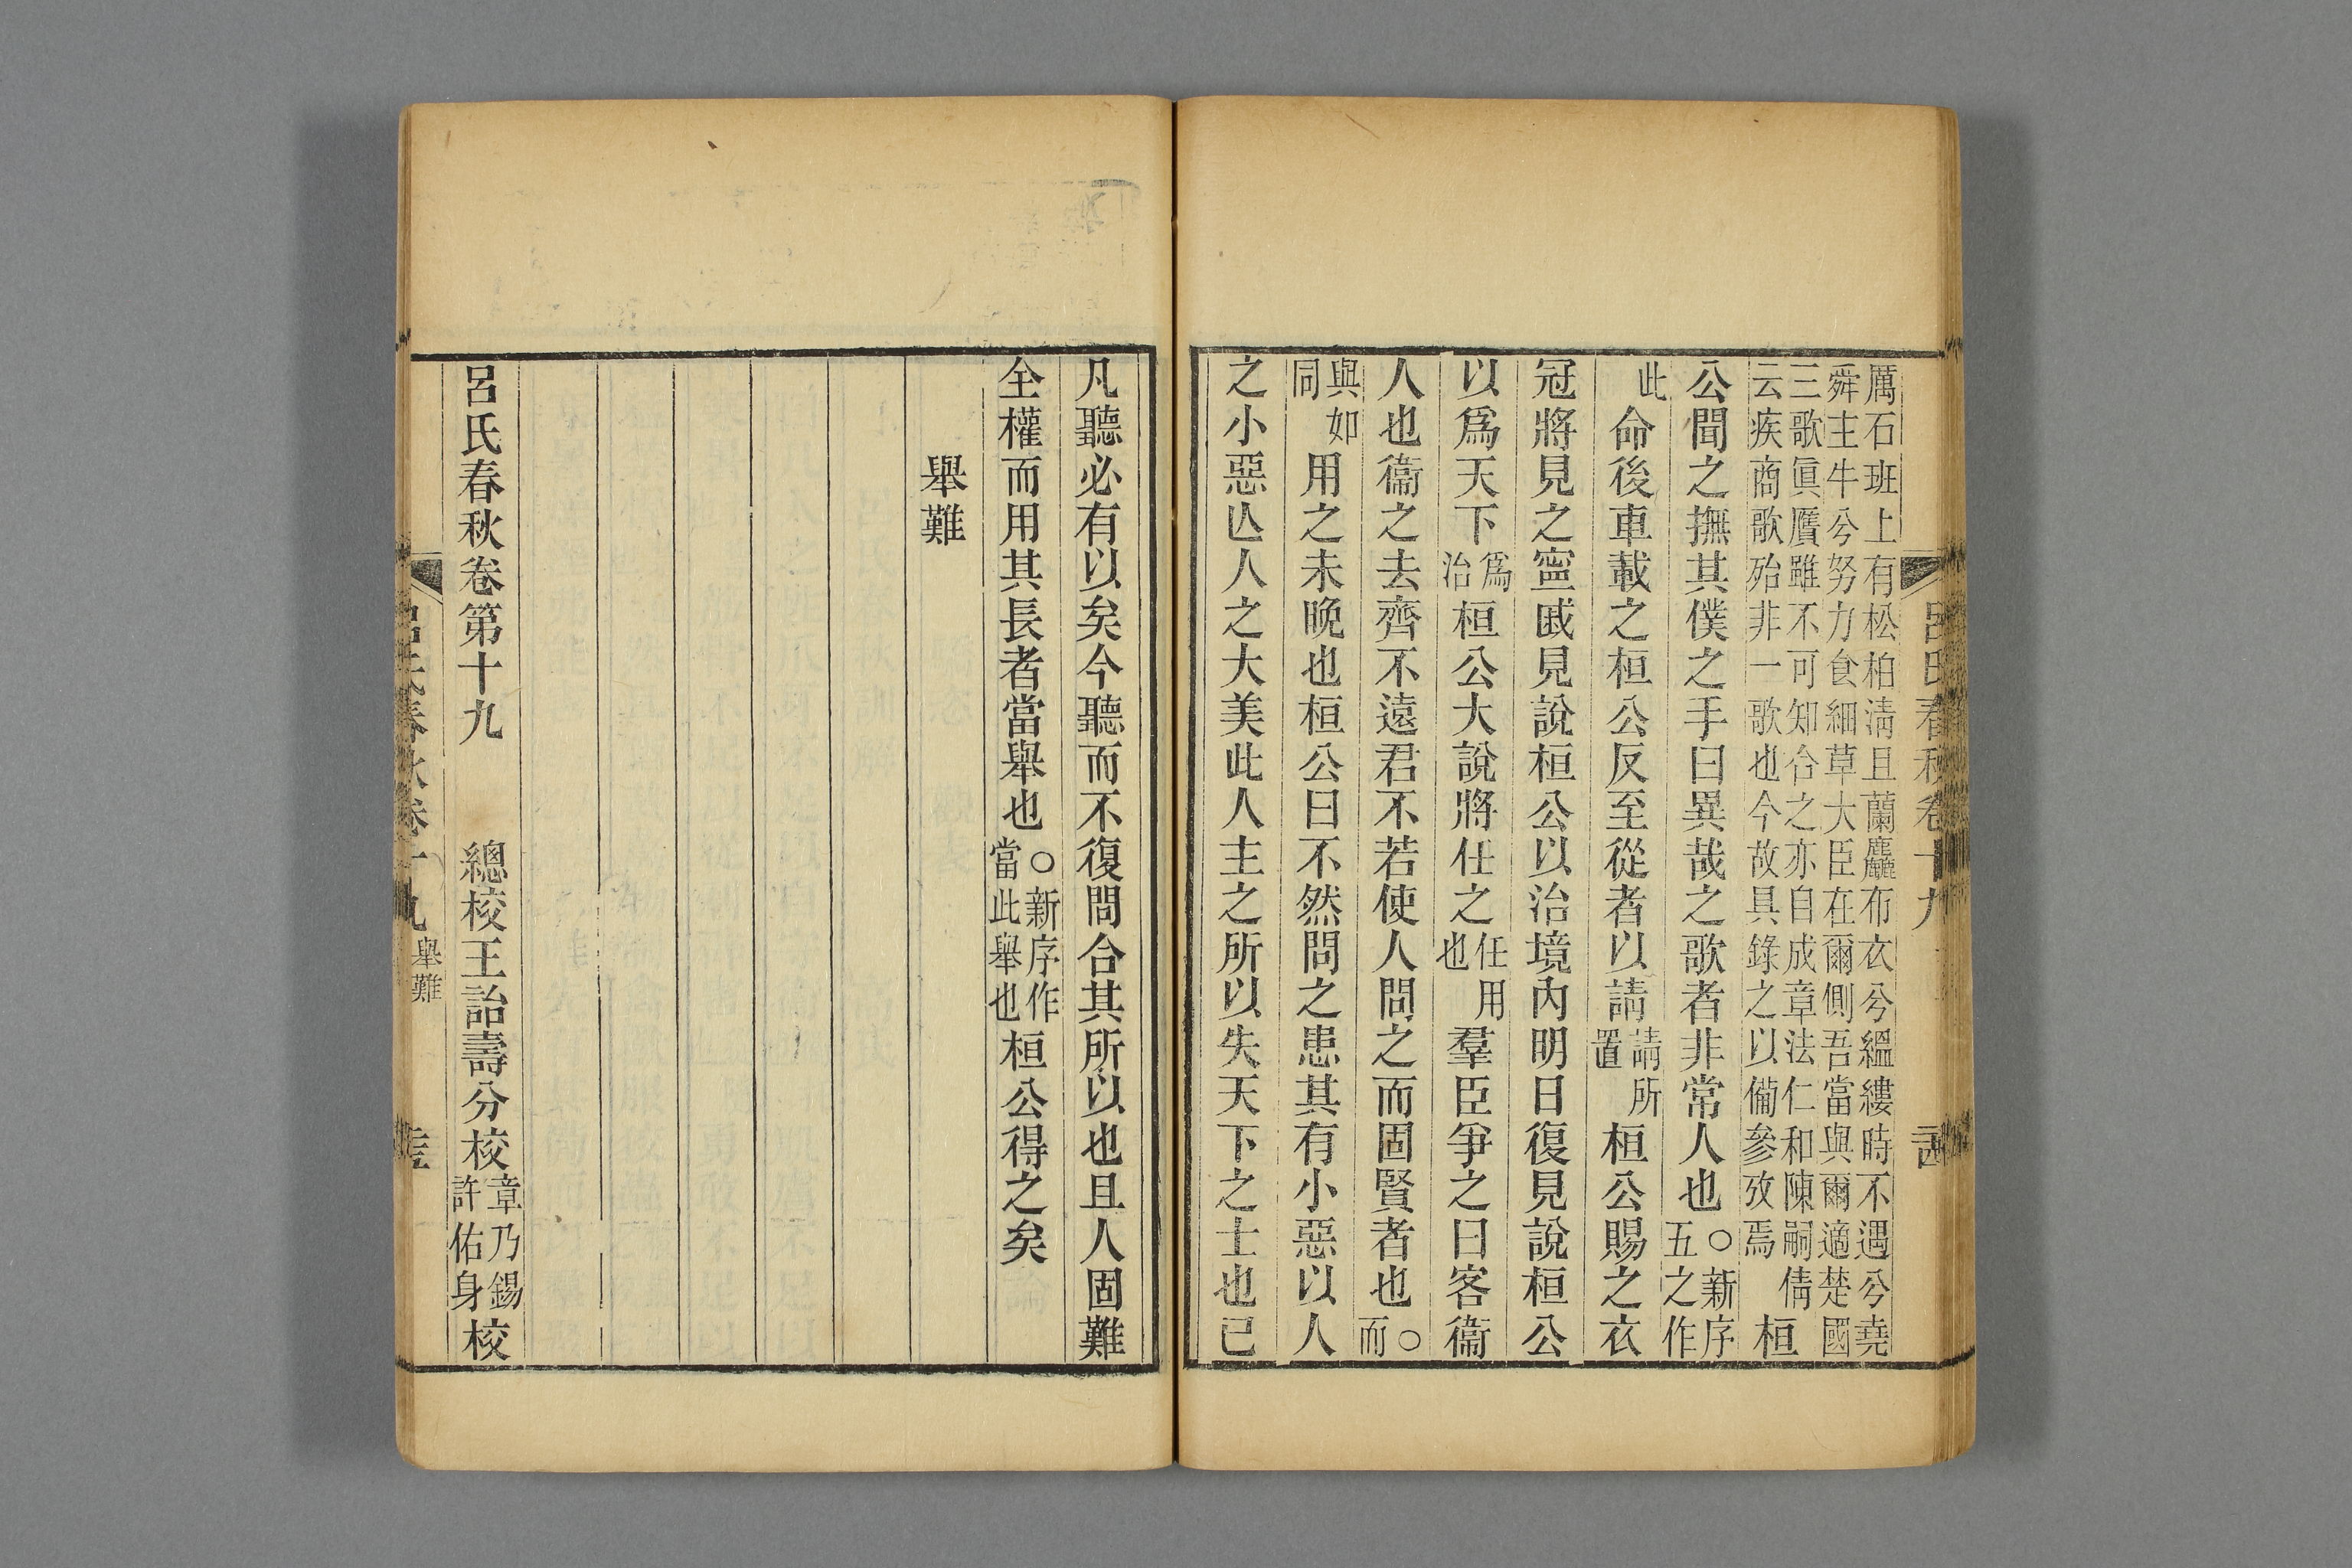 呂氏春秋卷十九
厲石班上有松柏淸且蘭麤布衣兮縕縷時不遇兮堯
舜主牛兮努力食細草大臣在爾側吾當與爾適楚國
三歌眞贋雖不可知合之亦自成章法仁和陳嗣倩
云疾商歌殆非一歌也今故具錄之以備參攷焉 桓
公聞之撫其僕之手曰異哉之歌者非常人也○新序五之作
此命後車載之桓公反至從者以請請所置桓公賜之衣
冠將見之寗戚見說桓公以治境內明日復見說桓公
以爲天下爲治桓公大說將任之任用也羣臣爭之曰客衞
人也衞之去齊不遠君不若使人問之而固賢者也○而
與如同用之未晚也桓公曰不然問之患其有小惡以人
之小惡亾人之大美此人主之所以失天下之士也已
凡聽必有以矣今聽而不復問合其所以也且人固難
全權而用其長者當舉也○新序作當此舉也桓公得之矣
舉難
呂氏春秋卷第十九 總校王詒壽分校章乃錫許佑身校
呂氏春秋卷十九 舉難